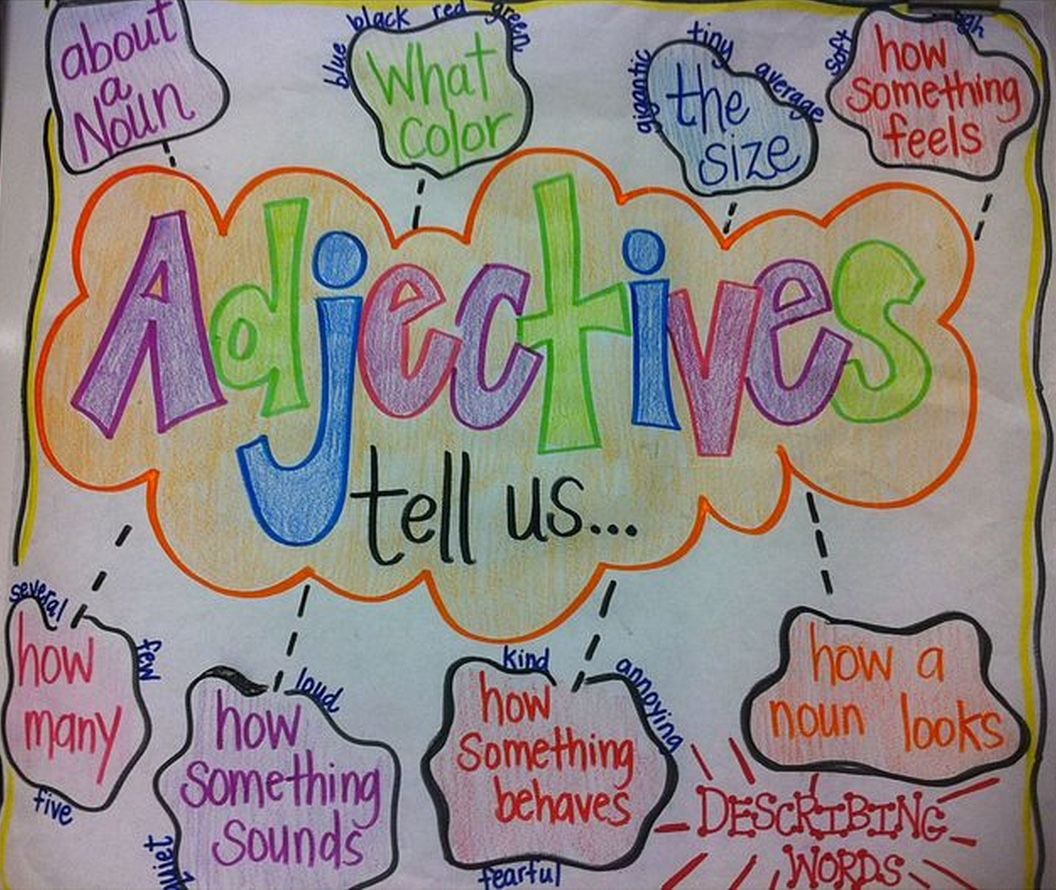 about
a
Noun
blue
black
red
green
What
color
gigantic
tiny
average
the
size
soft
how
something
feels
Adjectives
tell us...
several
few
how
many
five
loud
how
something
sounds
quiet
kind
annoying
how
something
behaves
fearful
how a
noun looks
DESCRIBING
WORDS